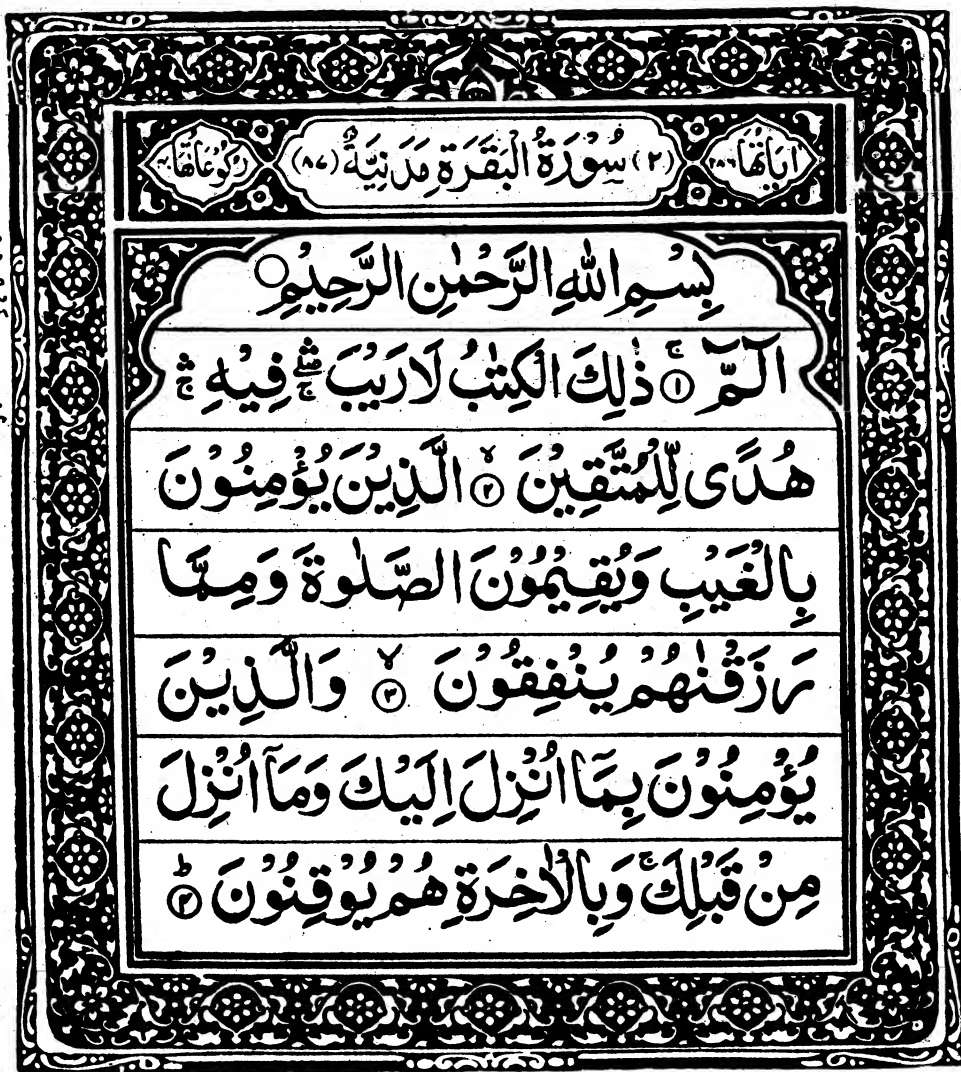 اٰيَاتُهَا ٢٨٦ (٢) سُوْرَةُ الْبَقَرَةِ مَدَنِيَّةٌ (٨٧) رُكُوْعَاتُهَا
بِسْمِ اللّٰهِ الرَّحْمٰنِ الرَّحِيْمِ
الٓمّٓ ۚ ۝١ ذٰلِكَ الْكِتٰبُ لَا رَيْبَ ۛۖۚ فِيْهِ ۛۚ
هُدًى لِّلْمُتَّقِيْنَ ۙ ۝٢ الَّذِيْنَ يُؤْمِنُوْنَ
بِالْغَيْبِ وَيُقِيْمُوْنَ الصَّلٰوةَ وَمِمَّا
رَزَقْنٰهُمْ يُنْفِقُوْنَ ۙ ۝٣ وَالَّذِيْنَ
يُؤْمِنُوْنَ بِمَآ اُنْزِلَ اِلَيْكَ وَمَآ اُنْزِلَ
مِنْ قَبْلِكَ ۚ وَبِالْاٰخِرَةِ هُمْ يُوْقِنُوْنَ ؕ ۝٤